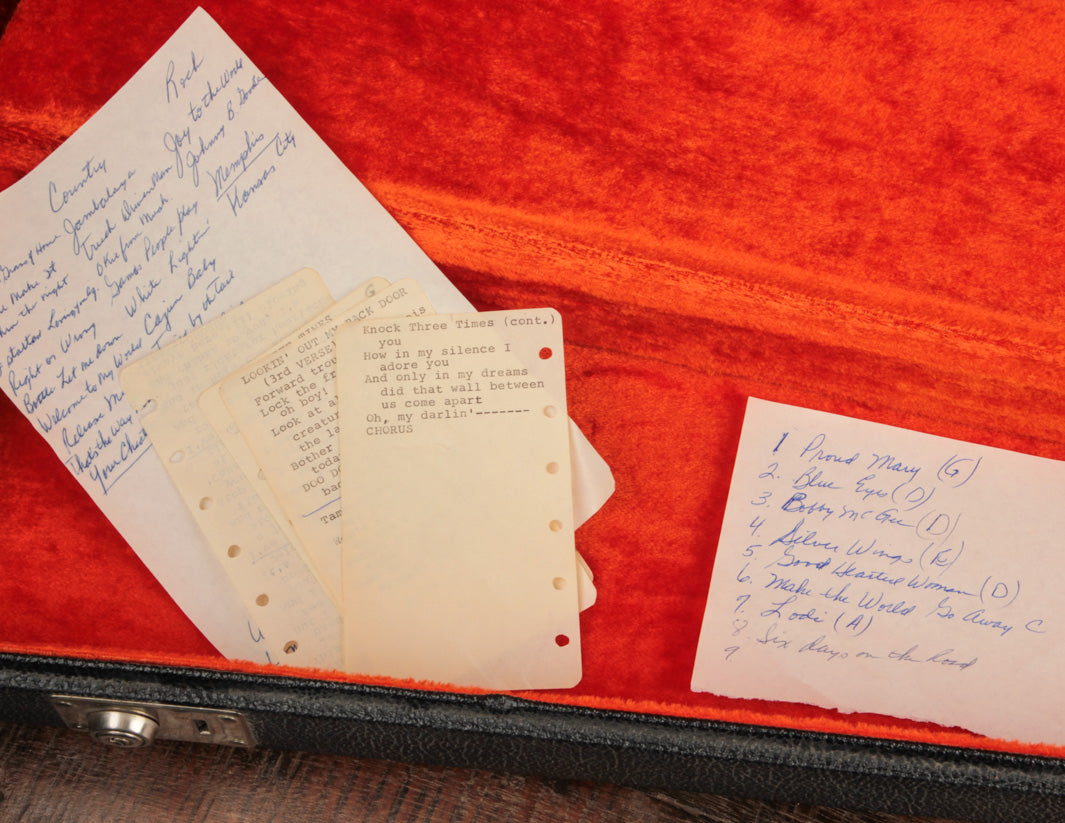 Rock
Joy to the World
Johnny B. Goode
Memphis
Kansas City
Country
Jambalaya
Truck Drivin Man
Okie from Musk.
Games People Play
White Lightin'
Cajun Baby
by the Tail
Green Grass of Home
Make it
thru the night
Lovingly
Right or Wrong
Bottle Let me down
Welcome to My World
Release Me
That's the Way
Your Cheat
G
TIMES
LOOKIN' OUT MY BACK DOOR
(3rd VERSE)
Forward trou
Lock the fr
oh boy!
Look at a
creatur
the la
Bother
toda
DOO DO
bac
Tam
Knock Three Times (cont.)
you
How in my silence I
adore you
And only in my dreams
did that wall between
us come apart
Oh, my darlin'-------
CHORUS
1 Proud Mary (G)
2. Blue Eyes (D)
3. Bobby McGee (D)
4. Silver Wings (E)
5 Good Hearted Woman (D)
6. Make the World Go Away C
7. Lodi (A)
8. Six Days on the Road
9.